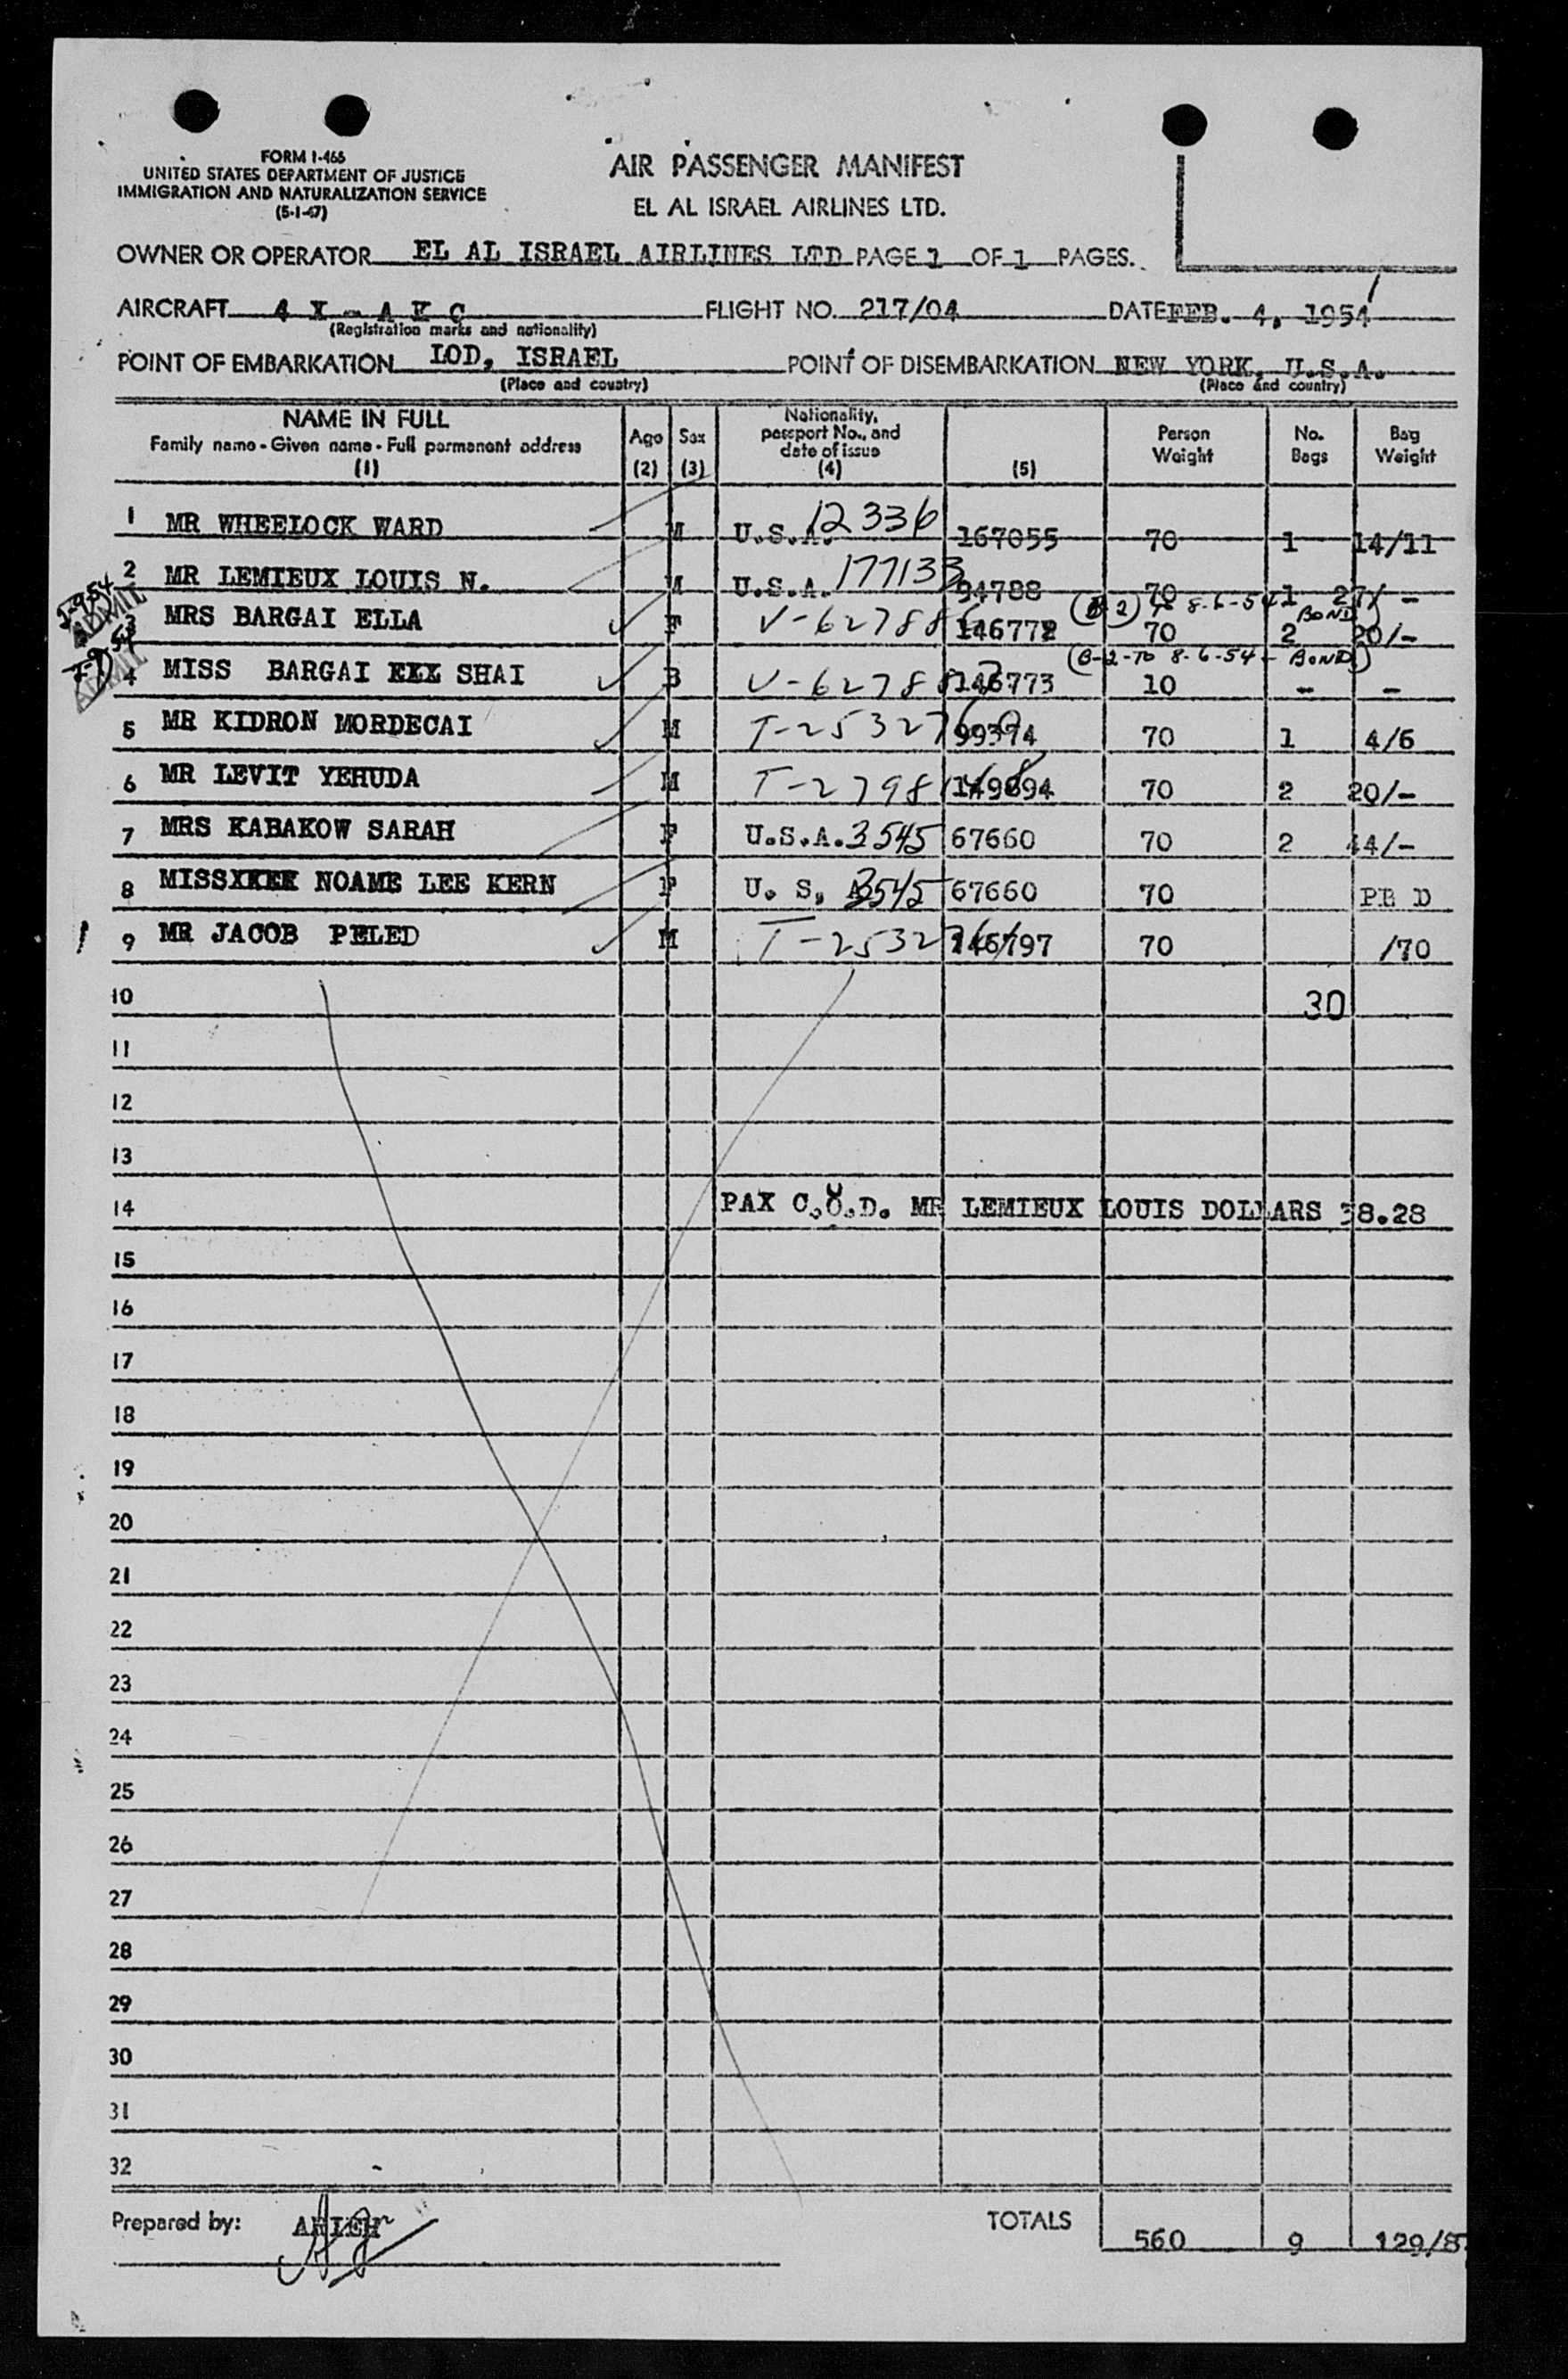 FORM I-466
UNITED STATES DEPARTMENT OF JUSTICE
IMMIGRATION AND NATURALIZATION SERVICE
(5-1-47)
AIR PASSENGER MANIFEST
EL AL ISRAEL AIRLINES LTD.
OWNER OR OPERATOR EL AL ISRAEL AIRLINES LTD PAGE 1 OF 1 PAGES.
AIRCRAFT 4 X - A K C FLIGHT NO. 217/04 DATE FEB. 4, 1954
(Registration marks and nationality)
POINT OF EMBARKATION LOD, ISRAEL POINT OF DISEMBARKATION NEW YORK, U.S.A.
(Place and country) (Place and country)
NAME IN FULL
Family name - Given name - Full permanent address
(1)
Age
(2)
Sex
(3)
Nationality,
passport No., and
date of issue
(4)
(5)
Person
Weight
No.
Bags
Bag
Weight
1 MR WHEELOCK WARD M U.S.A. 12336 167055 70 1 14/11
2 MR LEMIEUX LOUIS N. M U.S.A. 177133 94788 70 1 27/ -
(B-2) to 8-6-54 BOND
3 MRS BARGAI ELLA F V-62788 146772 70 2 20/-
(B-2-TO 8-6-54 - BOND)
4 MISS BARGAI SHAI B V-6278 146773 10 - -
5 MR KIDRON MORDECAI M T-25327 99374 70 1 4/6
6 MR LEVIT YEHUDA M T-2798 149694 70 2 20/-
7 MRS KABAKOW SARAH F U.S.A. 3545 67660 70 2 44/-
8 MISS NOAME LEE KERN F U. S. A. 3545 67660 70 PE D
9 MR JACOB PELED M T-2532 146797 70 /70
10 30
11
12
13
14 PAX C.O.D. MR LEMIEUX LOUIS DOLLARS 38.28
15
16
17
18
19
20
21
22
23
24
25
26
27
28
29
30
31
32
Prepared by: ARIEH TOTALS 560 9 129/8